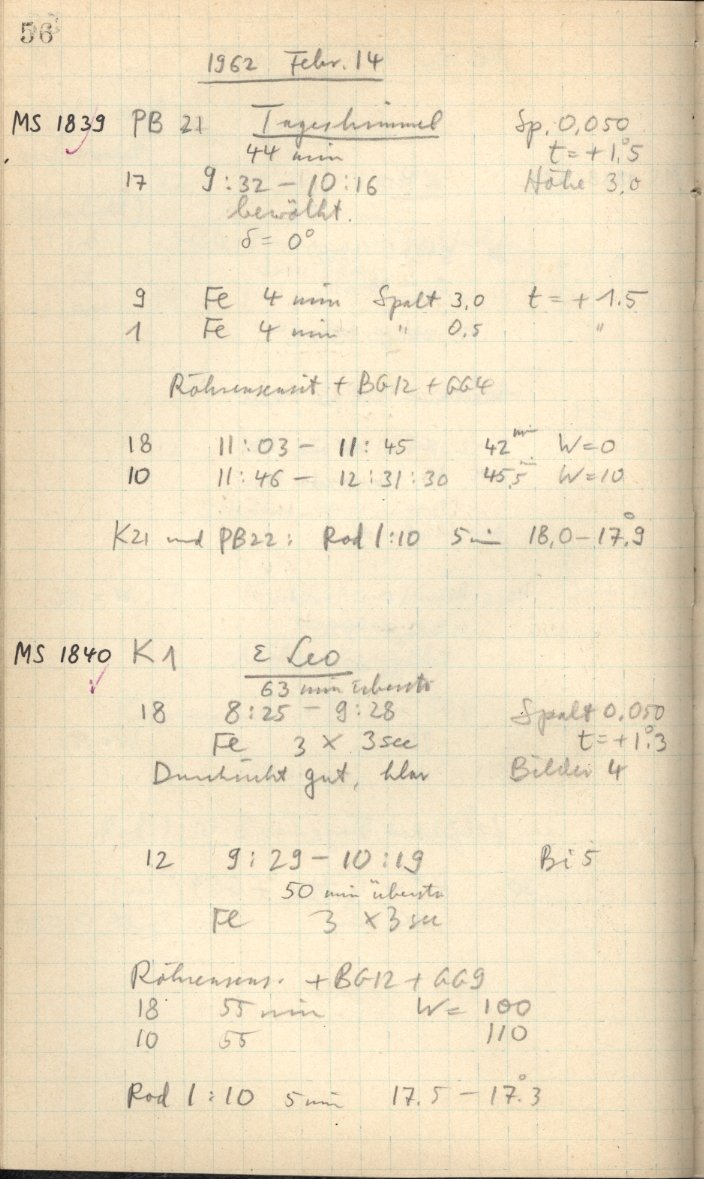 56
1962 Febr. 14
MS 1839 PB 21 Tageshimmel Sp. 0,050
44 min t = +1°,5
17 9:32 – 10:16 Höhe 3,0
bewölkt.
δ = 0°
9 Fe 4 min Spalt 3,0 t = + 1.5
1 Fe 4 min " 0,5 "
Röhrensensit + BG12 + GG4
18 11:03 – 11:45 42 min W=0
10 11:46 – 12:31:30 45,5 min W=10
K21 und PB22: Rod 1:10 5 min 18,0 – 17°,9
MS 1840 K1 ε Leo
63 min überstr
18 8:25 – 9:28 Spalt 0.050
Fe 3 × 3sec t = +1°.3
Durchsicht gut, klar Bilder 4
12 9:29 – 10:19 Bi 5
50 min überstr
Fe 3 × 3 sec
Röhrensens. + BG12 + GG9
18 55 min W = 100
10 55 110
Rod 1:10 5 min 17.5 – 17°.3